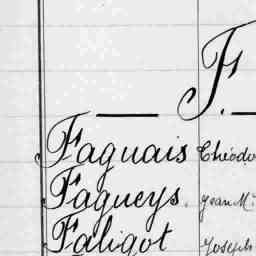 F.
Faguais Théodo
Fagueys. Jean Mie
Faligot Joseph